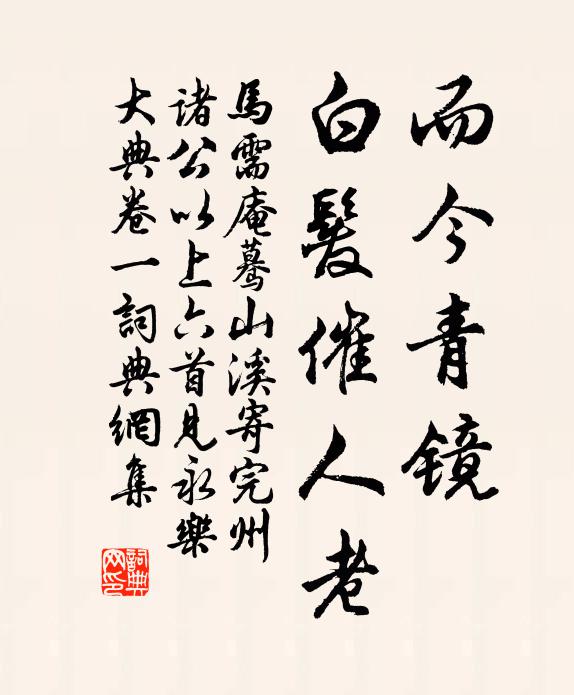 而今青镜
白髮催人老
馬需庵驀山溪寄完州
诸公以上六首見永樂
大典卷一詞典網集
詞典网印